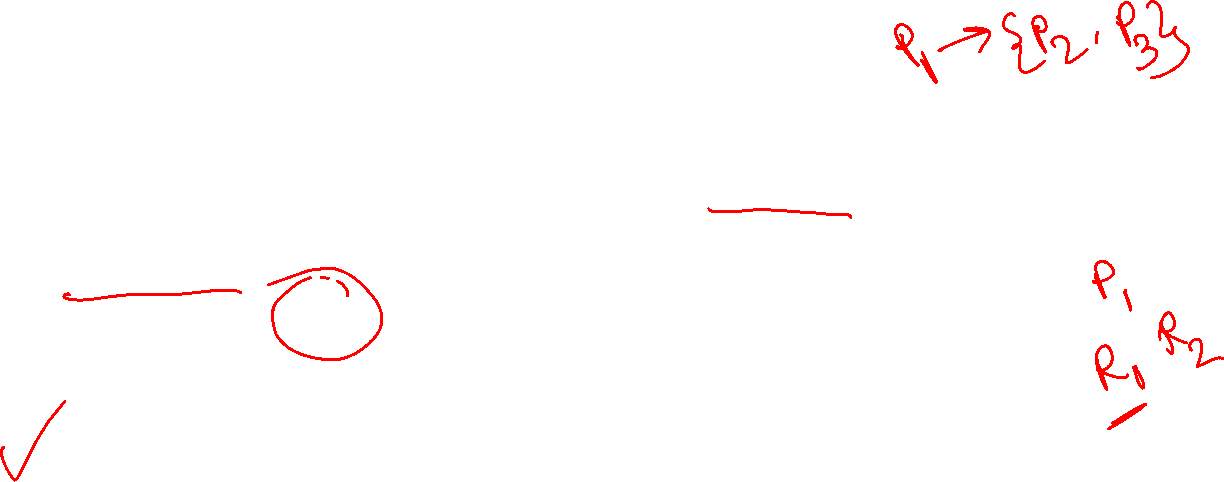 P₁ → {P₂, P₃}
P₁
R₁ R₂